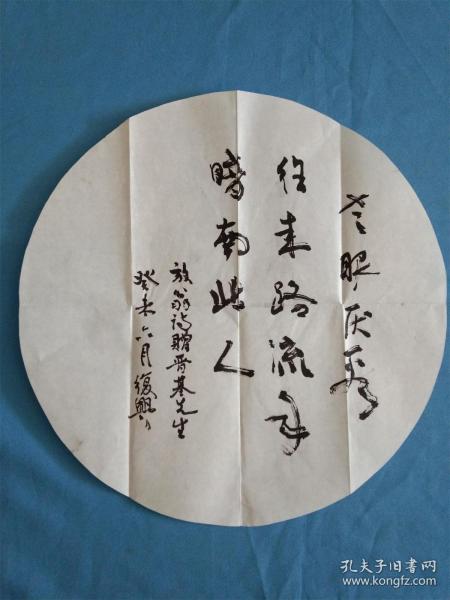 老眼厌看
往来路流年
暗南北人
放翁诗赠晋基先生
癸未六月復興
孔夫子旧书网
www.kongfz.com